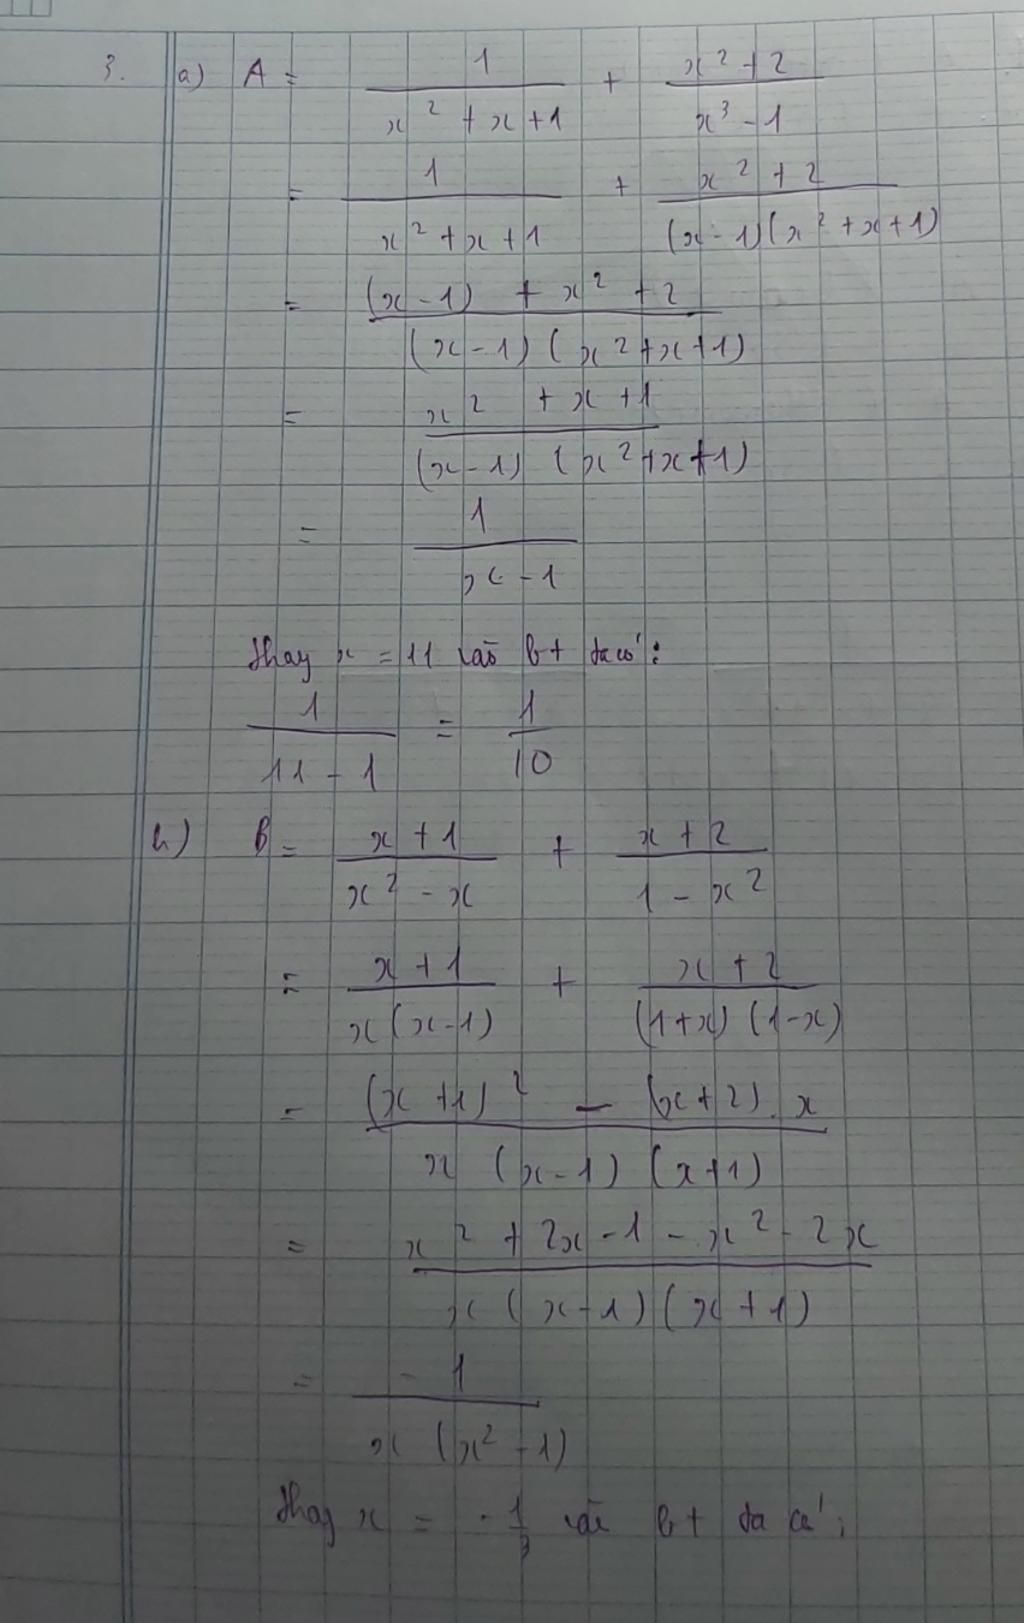 3. a) A = 1/(x² + x + 1) + (x² + 2)/(x³ - 1)
= 1/(x² + x + 1) + (x² + 2)/((x - 1)(x² + x + 1))
= ((x - 1) + x² + 2)/((x - 1)(x² + x + 1))
= (x² + x + 1)/((x - 1)(x² + x + 1))
= 1/(x - 1)
Thay x = 11 vào bt ta có:
1/(11 - 1) = 1/10
b) B = (x + 1)/(x² - x) + (x + 2)/(1 - x²)
= (x + 1)/(x(x - 1)) + (x + 2)/((1 + x)(1 - x))
= ((x + 1)² - (x + 2).x)/(x(x - 1)(x + 1))
= (x² + 2x - 1 - x² - 2x)/(x(x - 1)(x + 1))
= -1/(x(x² - 1))
Thay x = -1/3 vào bt ta có: